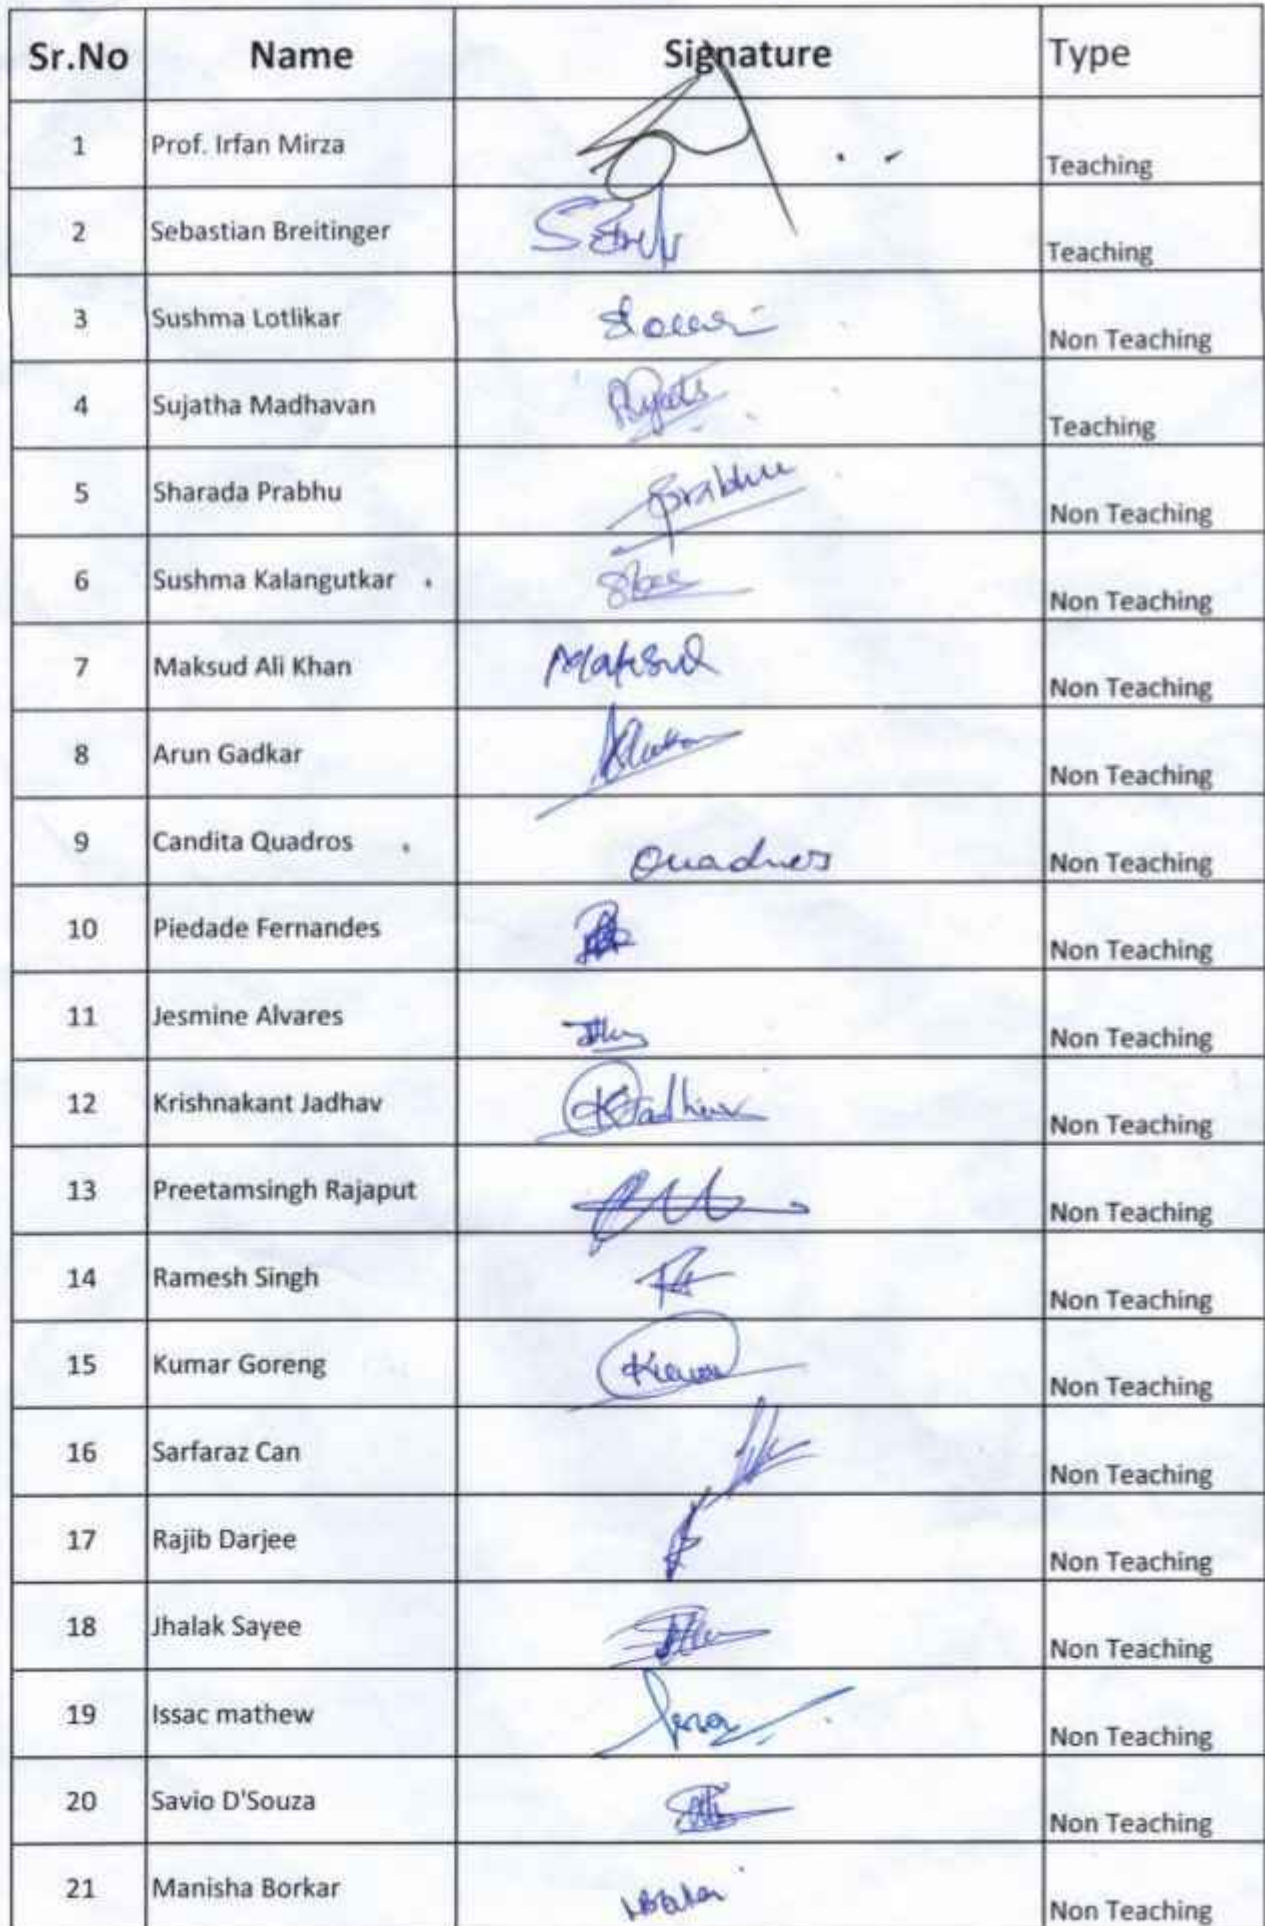 Sr.No Name Signature Type
1 Prof. Irfan Mirza Teaching
2 Sebastian Breitinger Teaching
3 Sushma Lotlikar Non Teaching
4 Sujatha Madhavan Teaching
5 Sharada Prabhu Prabhu Non Teaching
6 Sushma Kalangutkar Non Teaching
7 Maksud Ali Khan Maksud Non Teaching
8 Arun Gadkar Non Teaching
9 Candita Quadros Quadros Non Teaching
10 Piedade Fernandes Non Teaching
11 Jesmine Alvares Non Teaching
12 Krishnakant Jadhav KJadhav Non Teaching
13 Preetamsingh Rajaput Non Teaching
14 Ramesh Singh Non Teaching
15 Kumar Goreng Kumar Non Teaching
16 Sarfaraz Can Non Teaching
17 Rajib Darjee Non Teaching
18 Jhalak Sayee Non Teaching
19 Issac mathew Non Teaching
20 Savio D'Souza Non Teaching
21 Manisha Borkar Non Teaching